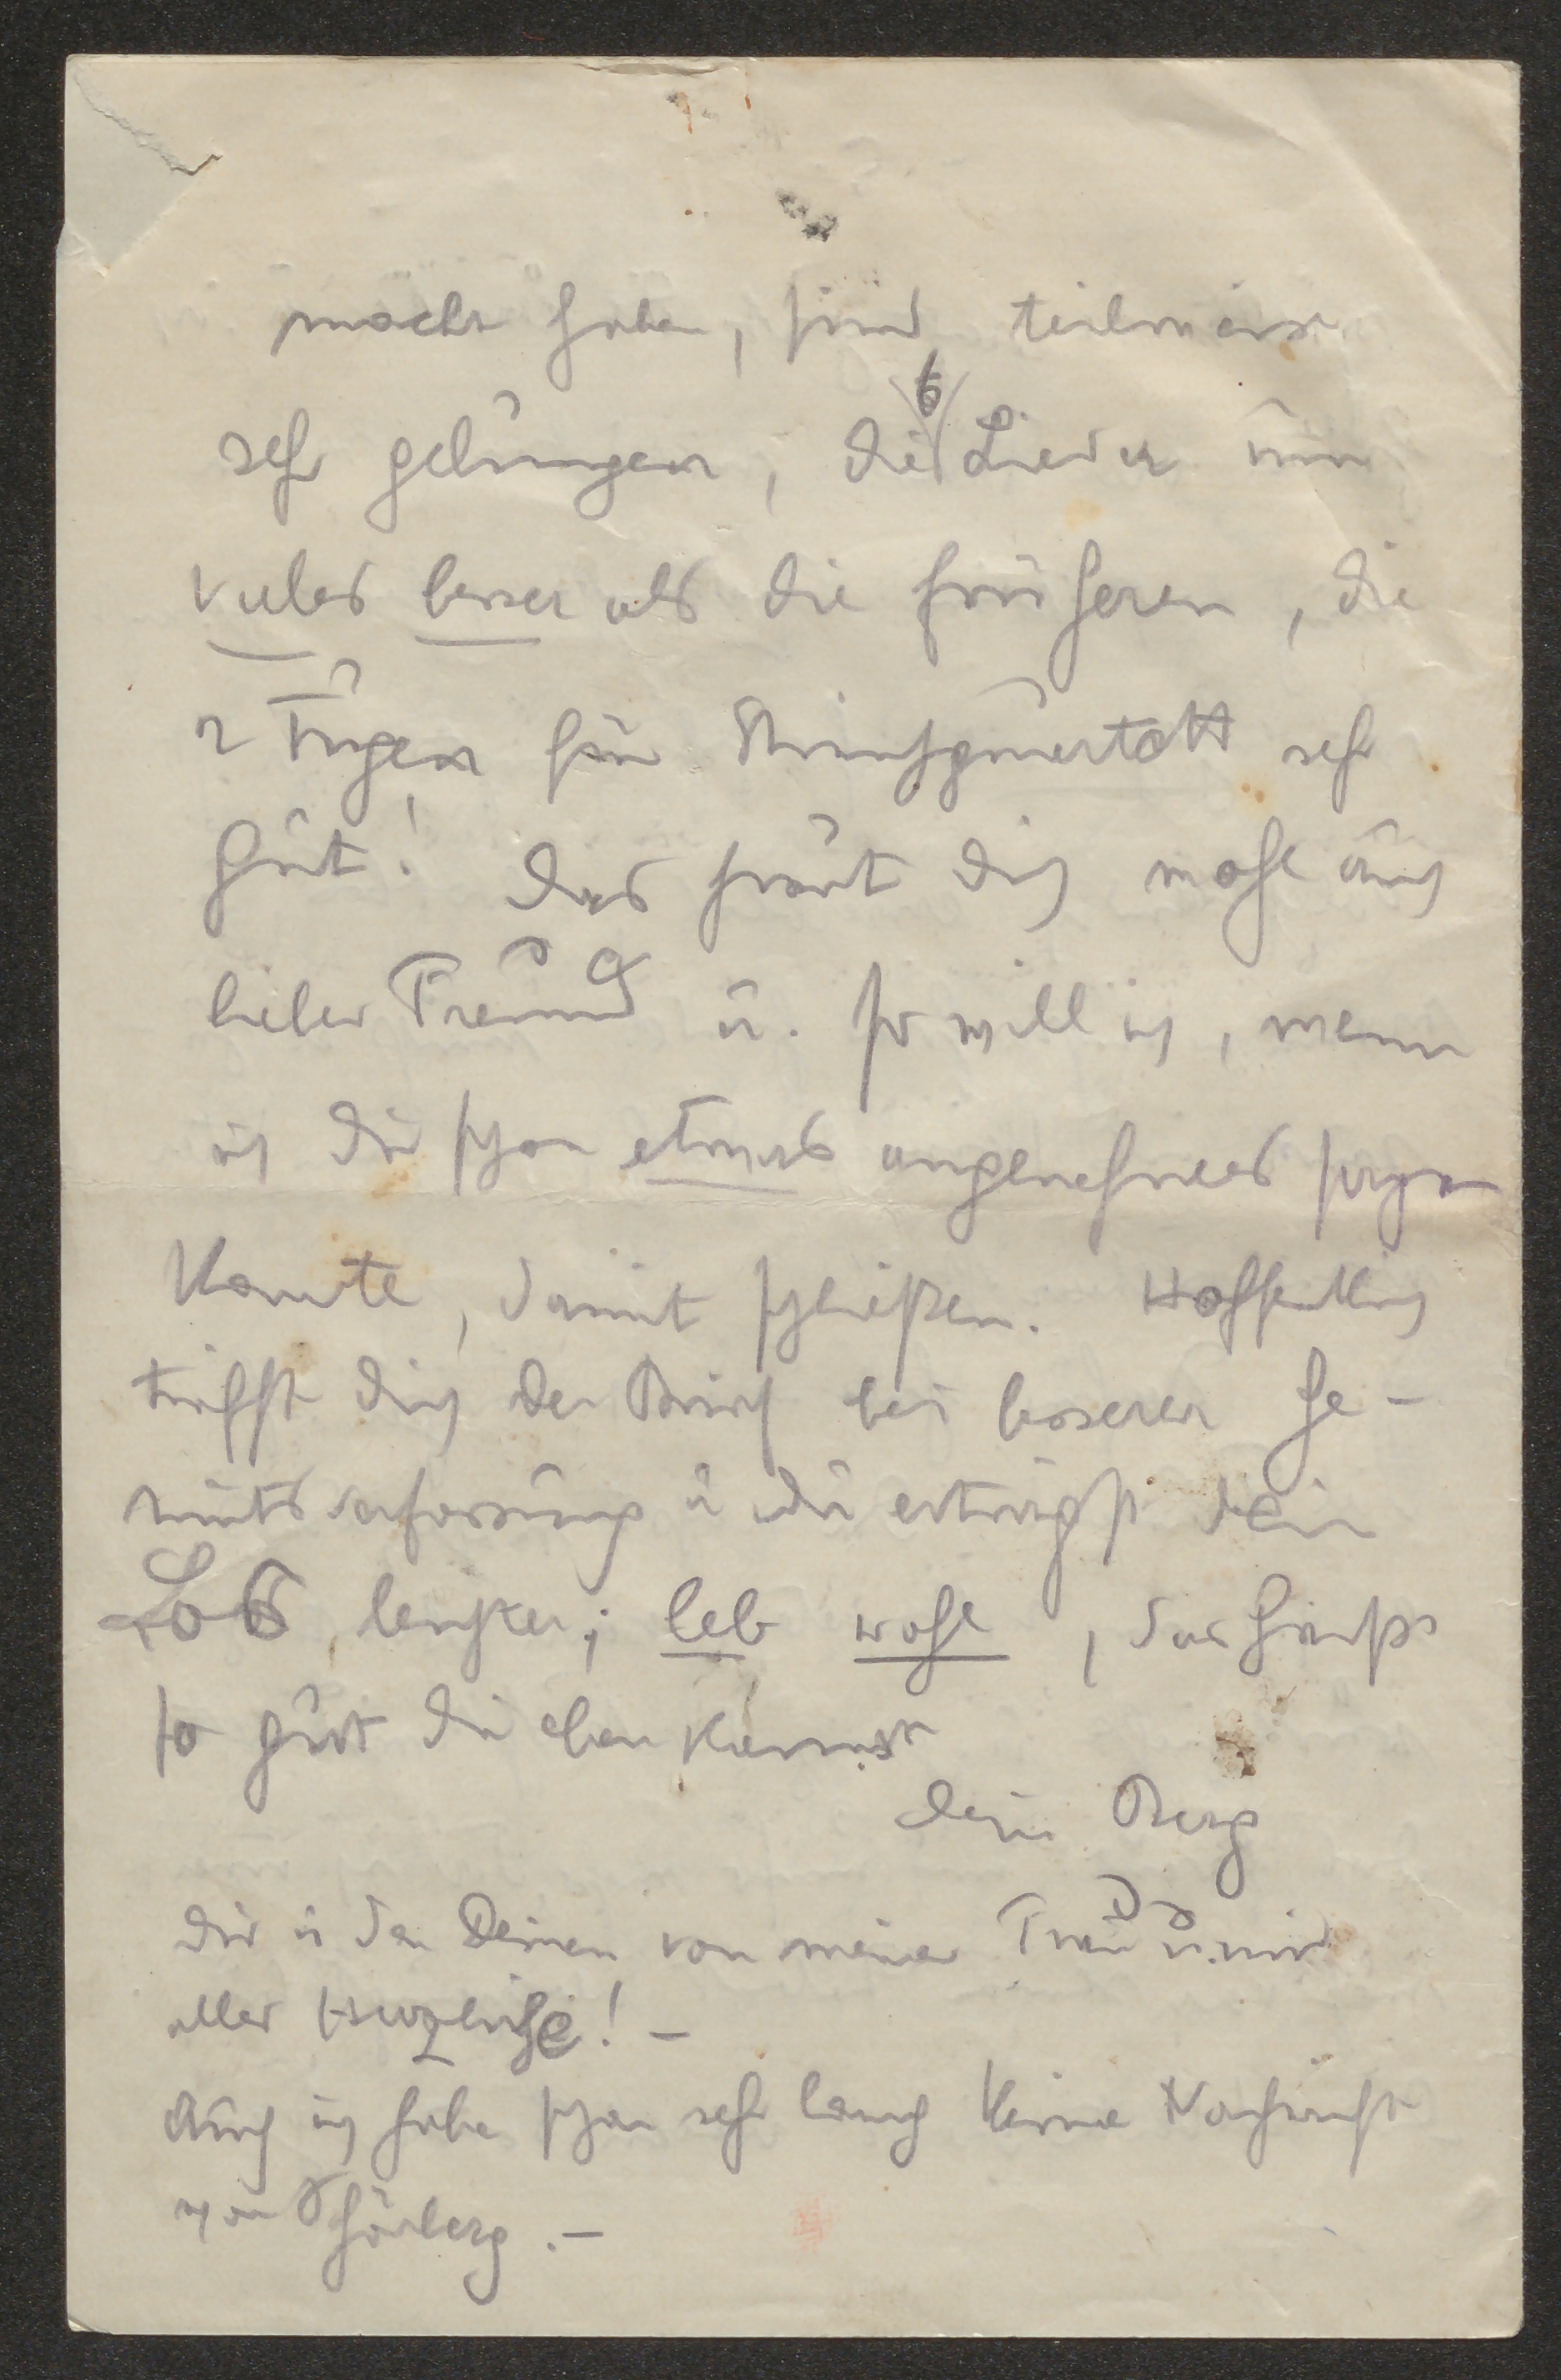 macht haben, sind teilweise
sehr gelungen, die 6 Lieder um
vieles besser als die früheren, die
2 Fugen für Streichquartett sehr
gut! Das freut dich wohl auch
lieber Freund u. so will ich, wenn
ich dir schon etwas angenehmes sagen
konnte, damit schließen. Hoffentlich
trifft dich der Brief bei besserer Ge-
mütsverfassung u du erträgst dein
Los leichter; leb wohl, das heißt
so gut du eben kannst
dein Berg
Dir u den Deinen von meiner Frau u. mir
alles Herzliche! –
Auch ich habe schon sehr lang keine Nachricht
von Schönberg. –